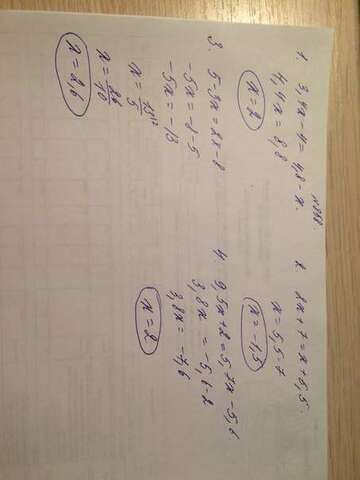 № 848
1. 3,4x - 4 = 4,8 - x.
4,4x = 8,8
x = 2
2. 2x + 7 = x + 5,5
x = 5,5 - 7
x = -1,5
3. 5 - 3x = 2x - 8
-5x = -8 - 5
-5x = -13
x = 13/5
x = 26/10
x = 2,6
4. 9,5x + 2 = 5,7x - 5,6
3,8x = -5,6 - 2
3,8x = -7,6
x = 2